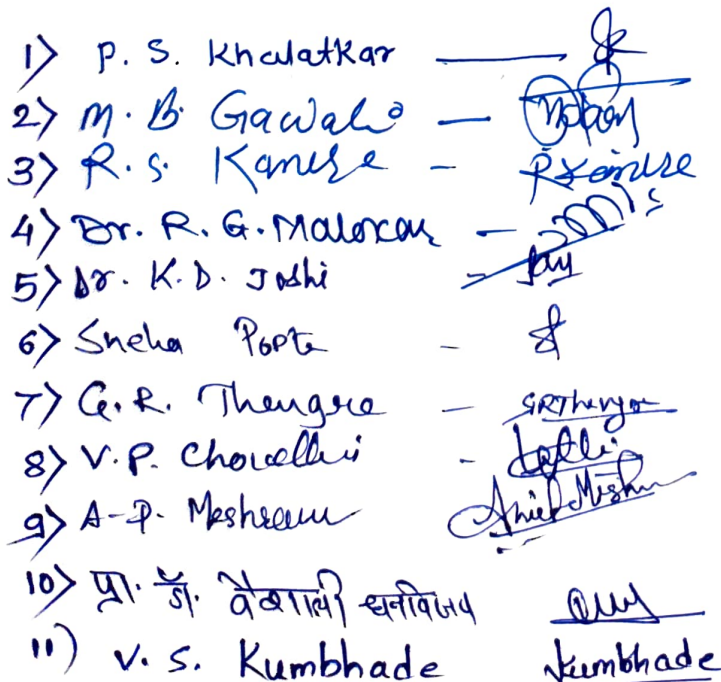 1) P. S. Khalatkar
2) M. B. Gawali
3) R. S. Kanire Rkanire
4) Dr. R. G. Malokar
5) Dr. K. D. Joshi
6) Sneha Popte
7) G. R. Thengre GRThengre
8) V. P. Chowdhri
9) A-P. Meshram
10) प्रा. डॉ. वैशाली धनविजय
11) V. S. Kumbhade Kumbhade